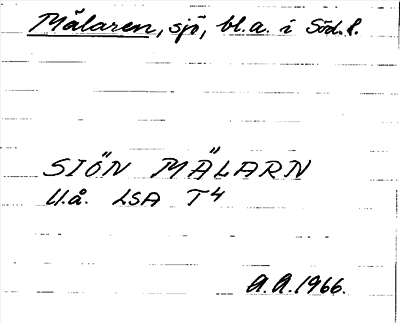 Mälaren, sjö, bl.a. i Söd.l.
SIÖN MÄLARN
U.å. LSA T4
A.A.1966.